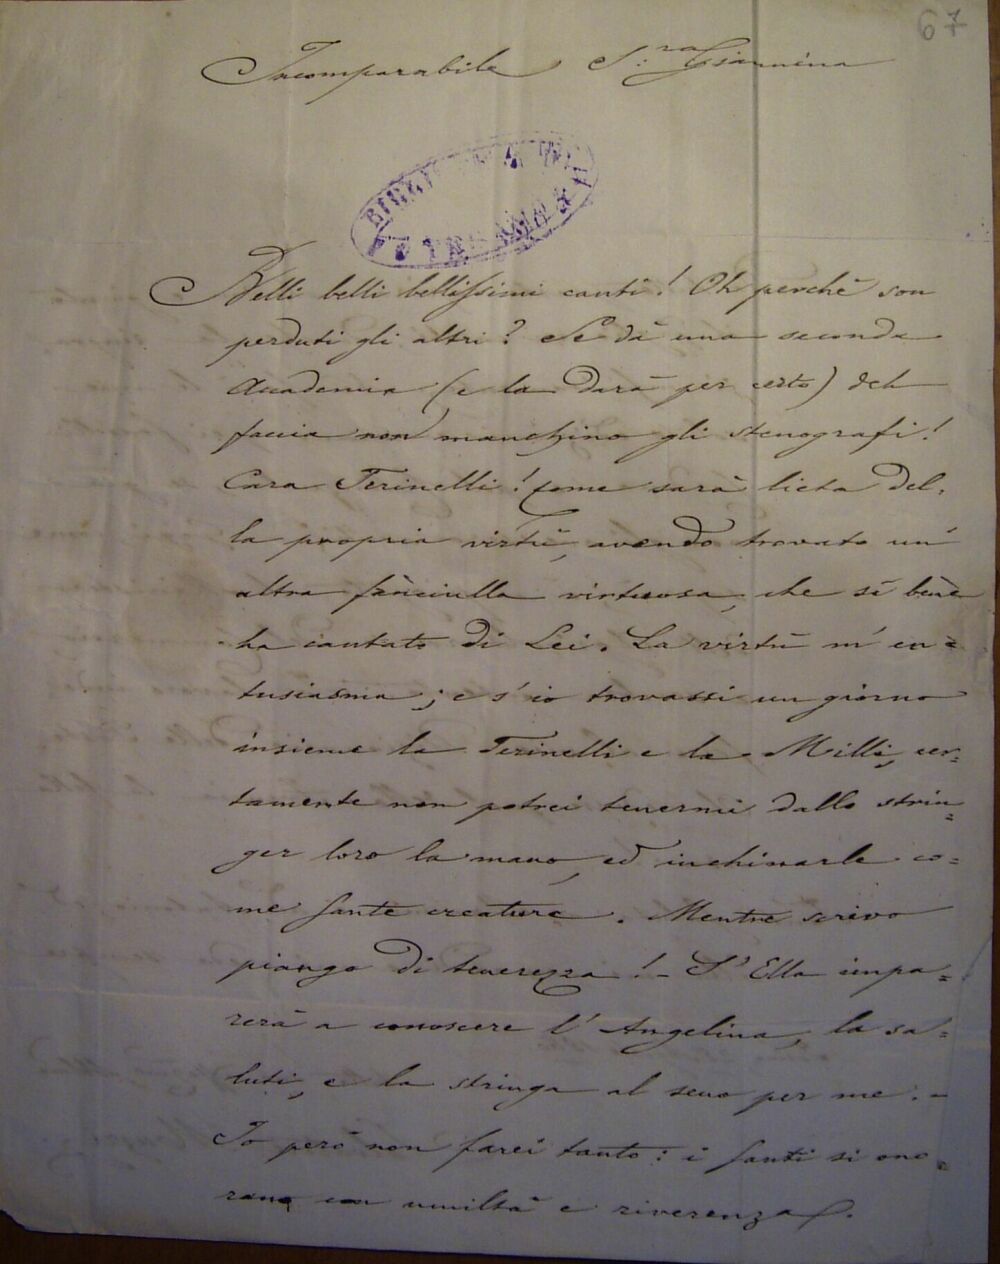 67
Incomparabile S.ra Giannina
Belli belli bellissimi canti! Oh perchè son
perduti gli altri? Se dà una seconda
Accademia (e la darà per certo) deh
faccia non manchino gli stenografi!
Cara Terinelli! come sarà lieta del-
la propria virtù, avendo trovato un'
altra fanciulla virtuosa, che sì bene
ha cantato di Lei. La virtù m'en=
tusiasma; e s'io trovassi un giorno
insieme la Terinelli e la Milli, cer-
tamente non potrei tenermi dallo strin=
ger loro la mano, ed inchinarle co=
me sante creature. Mentre scrivo
piango di tenerezza! – S'Ella impa=
rerà a conoscere l'Angelina, la sa=
luti, e la stringa al seno per me. –
Io però non farei tanto: i santi si ono=
rano con umiltà e riverenza.